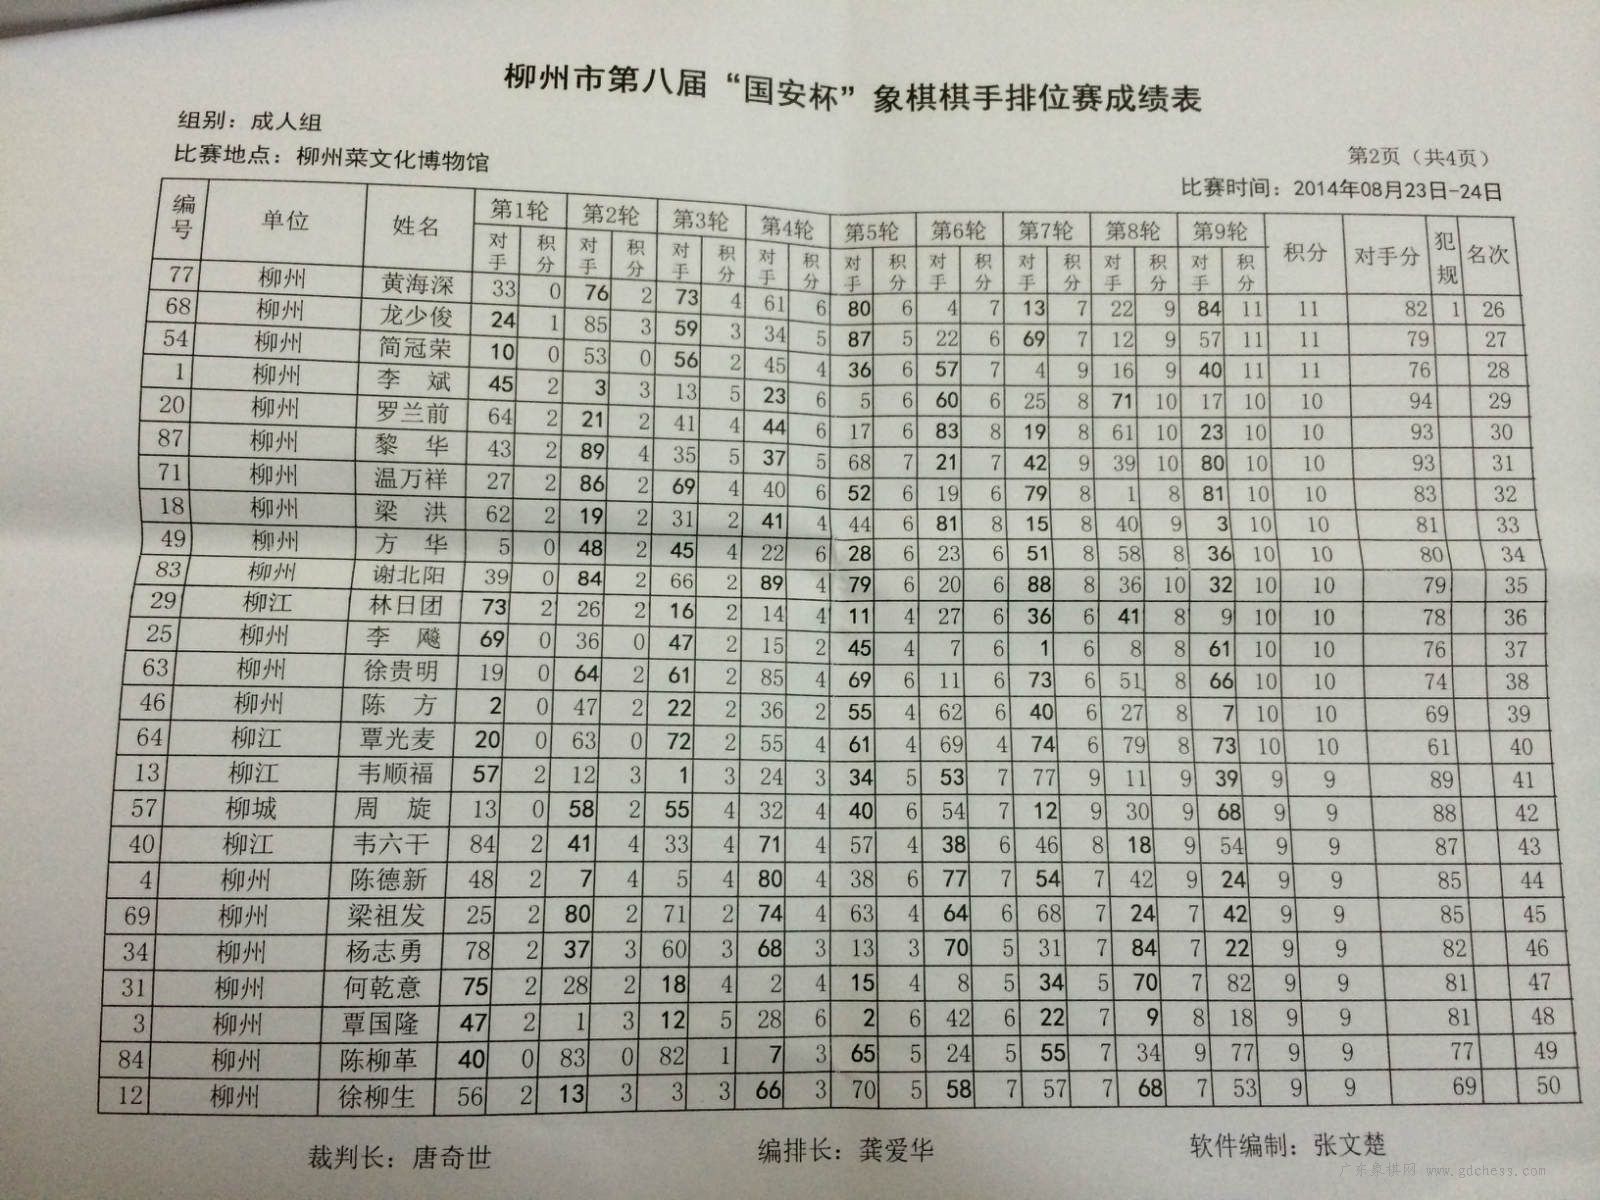 柳州市第八届“国安杯”象棋棋手排位赛成绩表
组别：成人组
比赛地点：柳州菜文化博物馆
第2页（共4页）
比赛时间：2014年08月23日-24日
编号 单位 姓名 第1轮 第2轮 第3轮 第4轮 第5轮 第6轮 第7轮 第8轮 第9轮 积分 对手分 犯规 名次
对手 积分 对手 积分 对手 积分 对手 积分 对手 积分 对手 积分 对手 积分 对手 积分 对手 积分
77 柳州 黄海深 33 0 76 2 73 4 61 6 80 6 4 7 13 7 22 9 84 11 11 82 1 26
68 柳州 龙少俊 24 1 85 3 59 3 34 5 87 5 22 6 69 7 12 9 57 11 11 79 27
54 柳州 简冠荣 10 0 53 0 56 2 45 4 36 6 57 7 4 9 16 9 40 11 11 76 28
1 柳州 李斌 45 2 3 3 13 5 23 6 5 6 60 6 25 8 71 10 17 10 10 94 29
20 柳州 罗兰前 64 2 21 2 41 4 44 6 17 6 83 8 19 8 61 10 23 10 10 93 30
87 柳州 黎华 43 2 89 4 35 5 37 5 68 7 21 7 42 9 39 10 80 10 10 93 31
71 柳州 温万祥 27 2 86 2 69 4 40 6 52 6 19 6 79 8 1 8 81 10 10 83 32
18 柳州 梁洪 62 2 19 2 31 2 41 4 44 6 81 8 15 8 40 9 3 10 10 81 33
49 柳州 方华 5 0 48 2 45 4 22 6 28 6 23 6 51 8 58 8 36 10 10 80 34
83 柳州 谢北阳 39 0 84 2 66 2 89 4 79 6 20 6 88 8 36 10 32 10 10 79 35
29 柳江 林日团 73 2 26 2 16 2 14 4 11 4 27 6 36 6 41 8 9 10 10 78 36
25 柳州 李飚 69 0 36 0 47 2 15 2 45 4 7 6 1 6 8 8 61 10 10 76 37
63 柳州 徐贵明 19 0 64 2 61 2 85 4 69 6 11 6 73 6 51 8 66 10 10 74 38
46 柳州 陈方 2 0 47 2 22 2 36 2 55 4 62 6 40 6 27 8 7 10 10 69 39
64 柳江 覃光麦 20 0 63 0 72 2 55 4 61 4 69 4 74 6 79 8 73 10 10 61 40
13 柳江 韦顺福 57 2 12 3 1 3 24 3 34 5 53 7 77 9 11 9 39 9 9 89 41
57 柳城 周旋 13 0 58 2 55 4 32 4 40 6 54 7 12 9 30 9 68 9 9 88 42
40 柳江 韦六干 84 2 41 4 33 4 71 4 57 4 38 6 46 8 18 9 54 9 9 87 43
4 柳州 陈德新 48 2 7 4 5 4 80 4 38 6 77 7 54 7 42 9 24 9 9 85 44
69 柳州 梁祖发 25 2 80 2 71 2 74 4 63 4 64 6 68 7 24 7 42 9 9 85 45
34 柳州 杨志勇 78 2 37 3 60 3 68 3 13 3 70 5 31 7 84 7 22 9 9 82 46
31 柳州 何乾意 75 2 28 2 18 4 2 4 15 4 8 5 34 5 70 7 82 9 9 81 47
3 柳州 覃国隆 47 2 1 3 12 5 28 6 2 6 42 6 22 7 9 8 18 9 9 81 48
84 柳州 陈柳革 40 0 83 0 82 1 7 3 65 5 24 5 55 7 34 9 77 9 9 77 49
12 柳州 徐柳生 56 2 13 3 3 3 66 3 70 5 58 7 57 7 68 7 53 9 9 69 50
裁判长：唐奇世 编排长：龚爱华 软件编制：张文楚
广东象棋网 www.gdchess.com